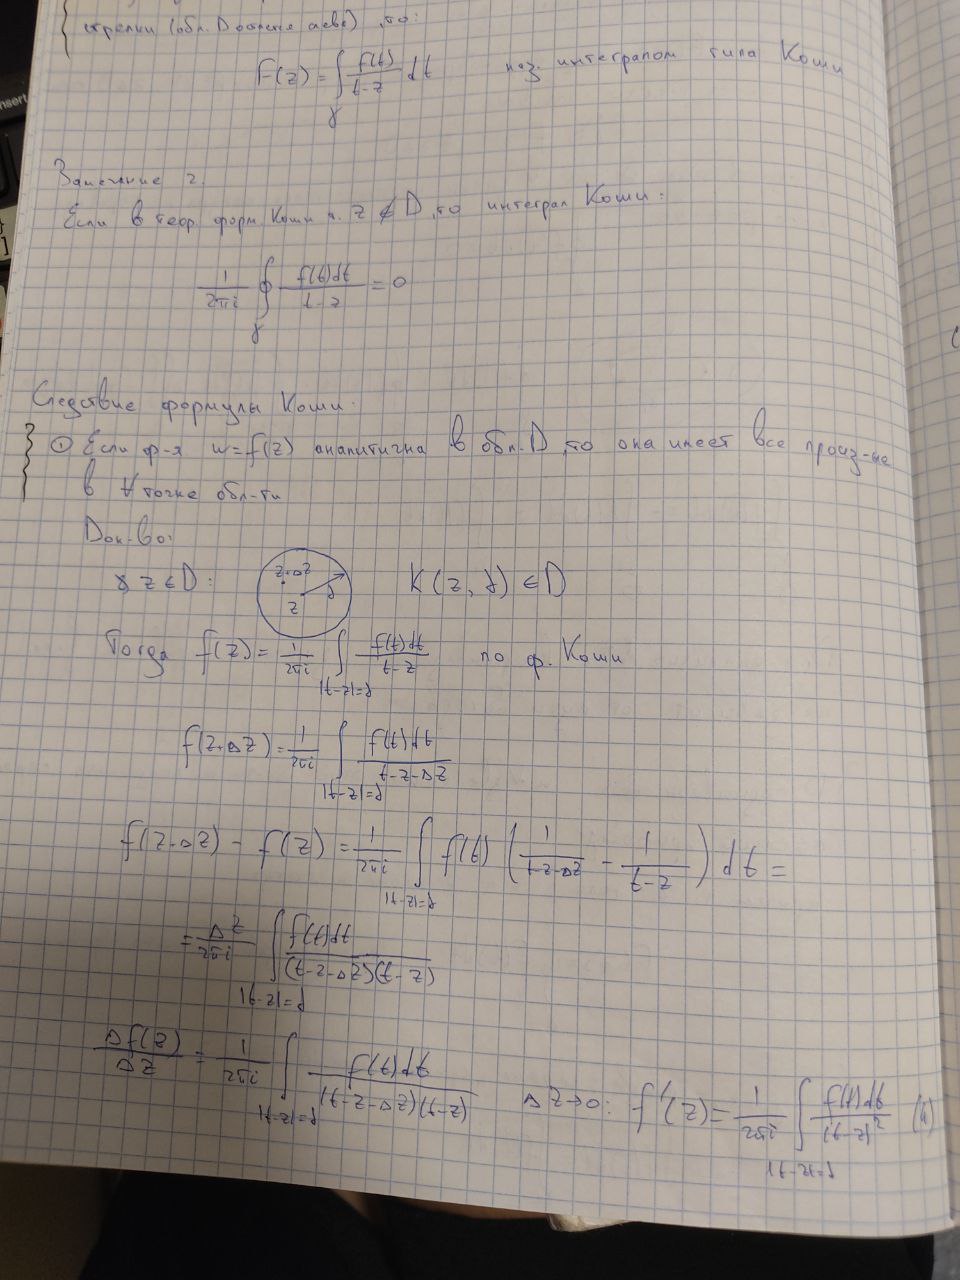 стрелки (обл. D остаётся слева), то:
F(z) = ∫_γ f(t)/(t-z) dt наз. интегралом типа Коши
Замечание 2.
Если в теор. форм. Коши т. z ∉ D, то интеграл Коши:
1/(2πi) ∮_γ f(t)dt/(t-z) = 0
Следствие формулы Коши.
① Если ф-я w=f(z) аналитична в обл. D, то она имеет все произ-ые
в ∀ точке обл-ти
Док-во:
∀ z ∈ D: z+Δz z ρ K(z, ρ) ∈ D
Тогда f(z) = 1/(2πi) ∫_{|t-z|=ρ} f(t)dt/(t-z) по ф. Коши
f(z+Δz) = 1/(2πi) ∫_{|t-z|=ρ} f(t)dt/(t-z-Δz)
f(z+Δz) - f(z) = 1/(2πi) ∫_{|t-z|=ρ} f(t) (1/(t-z-Δz) - 1/(t-z)) dt =
= Δz/(2πi) ∫_{|t-z|=ρ} f(t)dt/((t-z-Δz)(t-z))
Δf(z)/Δz = 1/(2πi) ∫_{|t-z|=ρ} f(t)dt/((t-z-Δz)(t-z)) Δz→0: f'(z) = 1/(2πi) ∫_{|t-z|=ρ} f(t)dt/(t-z)² (4)
insert